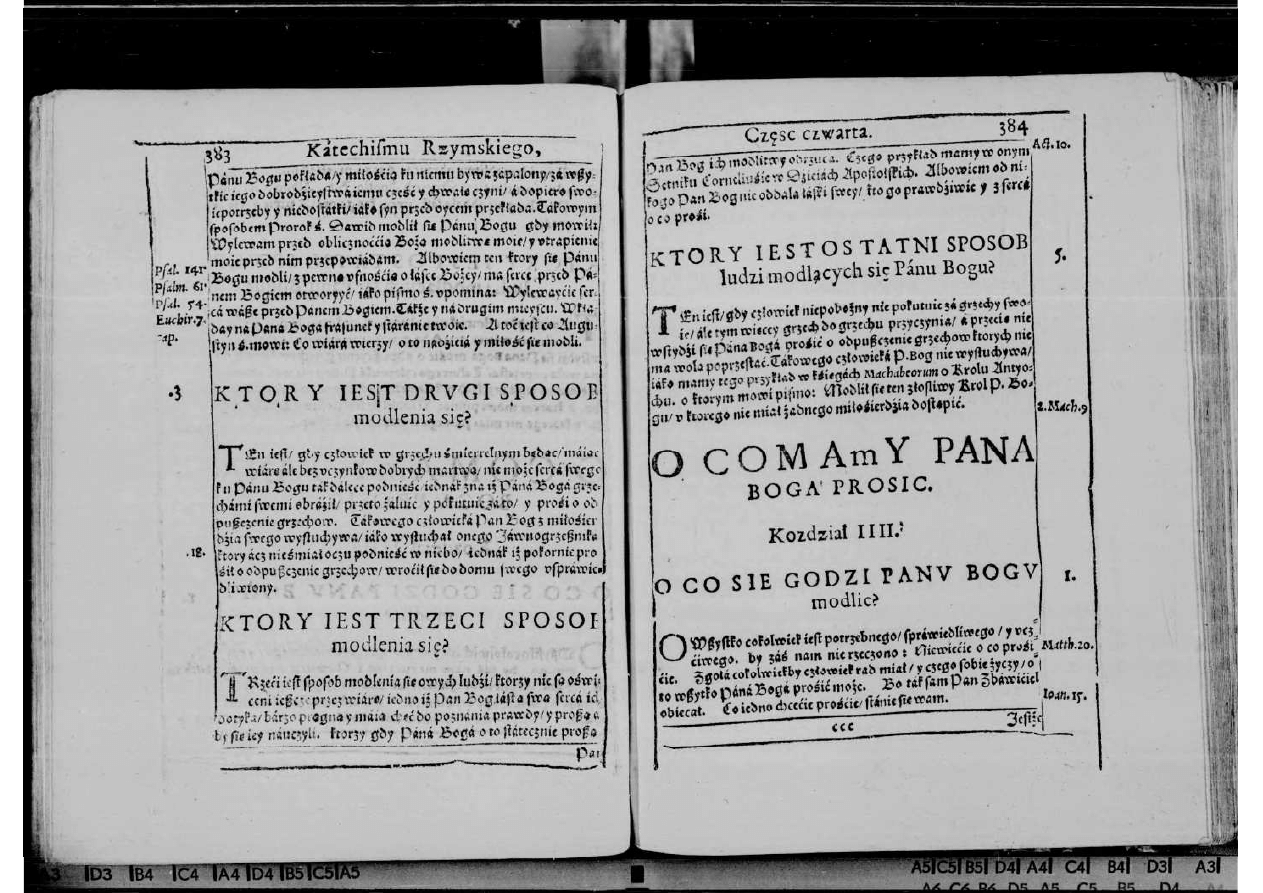 383 Kátechismu Rzymskiego,
Pánu Bogu pokłada/ y miłością ku niemu bywa zapalony/ zá wßy-
tkie iego dobrodzieystwá iemu cześć y chwałe czyni/ á dopiero swo-
ie potrzeby y niedostátki/ iáko syn przed oycem przekłada. Tákowym
sposobem Prorok ś. Dawid modlił sie Pánu Bogu gdy mowił:
Wylewam przed oblicznością Bożą modlitwe moię/ y vtrapienie
moie przed nim przepowiádam. Albowiem ten ktory sie Pánu
Bogu modli/ z pewną vfnością o łásce Bożey/ ma serce przed Pá-
nem Bogiem otworzyć/ iáko pismo ś. vpomina: Wylewayćie ser-
cá wáße przed Pánem Bogiem. Tákże y ná drugim mieyscu. Wkła
day na Páná Bogá frásunek y stáránie twoie. A toć iest co Augu-
styn ś. mowi: Co wiárá wierzy/ o to nádzieiá y miłość sie modli.
Psal. 141
Psalm. 61
Psal. 54.
Euchir. 7.
cap.
.3
KTORY IEST DRVGI SPOSOB
modlenia się?
TEn iest/ gdy człowiek w grzechu śmiertelnym będąc/ máiąc
wiáre ále bez vczynkow dobrych martwą/ nie może sercá swego
ku Pánu Bogu ták dálece podnieść/ iednák zna iż Páná Bogá grze-
chámi swemi obráźił/ przeto żáłuie y pokutuie zá to/ y prośi o od
pußczenie grzechow. Tákowego człowieká Pan Bog z miłośier
dzia swego wysłuchywa/ iáko wysłuchał onego Jáwnogrzeßniká
ktory ácz nie śmiał oczu podnieść w niebo/ iednák iż pokornie pro
śił o odpußczenie grzechow/ wroćił sie do domu swego vspráwie-
dliwiony.
.18.
KTORY IEST TRZECI SPOSOB
modlenia się?
TRzeći iest sposob modlenia sie owych ludzi/ ktorzy nie są oświe
ceni ießcze przez wiáre/ iedno iż Pan Bog łáską swą sercá ich
dotyka/ bárzo prágną y máią chęć do poznánia prawdy/ y proßą á
by sie iey náuczyli. ktorzy gdy Páná Bogá o to státecznie proßą
Pan
Częsc czwarta. 384
Pan Bog ich modlitwy nie odrzuca. Czego przykład mamy w onym
Setniku Corneliusie w Dzieiách Apostolskich. Albowiem od ni-
kogo Pan Bog nie oddala łáski swey/ kto go prawdziwie y z sercá
o co prośi.
Act. 10.
KTORY IEST OSTATNI SPOSOB
ludzi modlących się Pánu Bogu?
5.
TEn iest/ gdy człowiek niepobożny nie pokutuie zá grzechy swo-
ie/ ále tym więcey grzech do grzechu przyczynia/ á przećię nie
wstydzi sie Páná Bogá prośić o odpußczenie grzechow ktorych nie
ma wolą poprzestáć. Tákowego człowieká P. Bog nie wysłuchywa/
iáko mamy tego przykład w kśięgách Machabeorum o Krolu Antyo-
chu. o ktorym mowi pismo: Modlił sie ten złośliwy Krol P. Bo-
gu/ v ktorego nie miał żadnego miłośierdzia dostąpić.
2. Mach. 9
O CO MAmY PANA
BOGA PROSIC.
Rozdział IIII.
O CO SIE GODZI PANV BOGV
modlic?
1.
O Wßystko cokolwiek iest potrzebnego/ spráwiedliwego/ y vcz-
ćiwego. by záś nam nie rzeczono: Niewiećie o co prośi
ćie. Zgołá cokolwiekby człowiek rad miał/ y czego sobie życzy/ o
to wßytko Páná Bogá prośić może. Bo ták sam Pan Zbáwićiel
obiecał. Co iedno chcećie prośćie/ stánie sie wam.
Matth. 20.
Ioan. 15.
ccc
Jeſtże
A3 D3 B4 C4 A4 D4 B5 C5 A5
A5 C5 B5 D4 A4 C4 B4 D3 A3
A6 C6 B6 D5 A5 C5 B5 D4